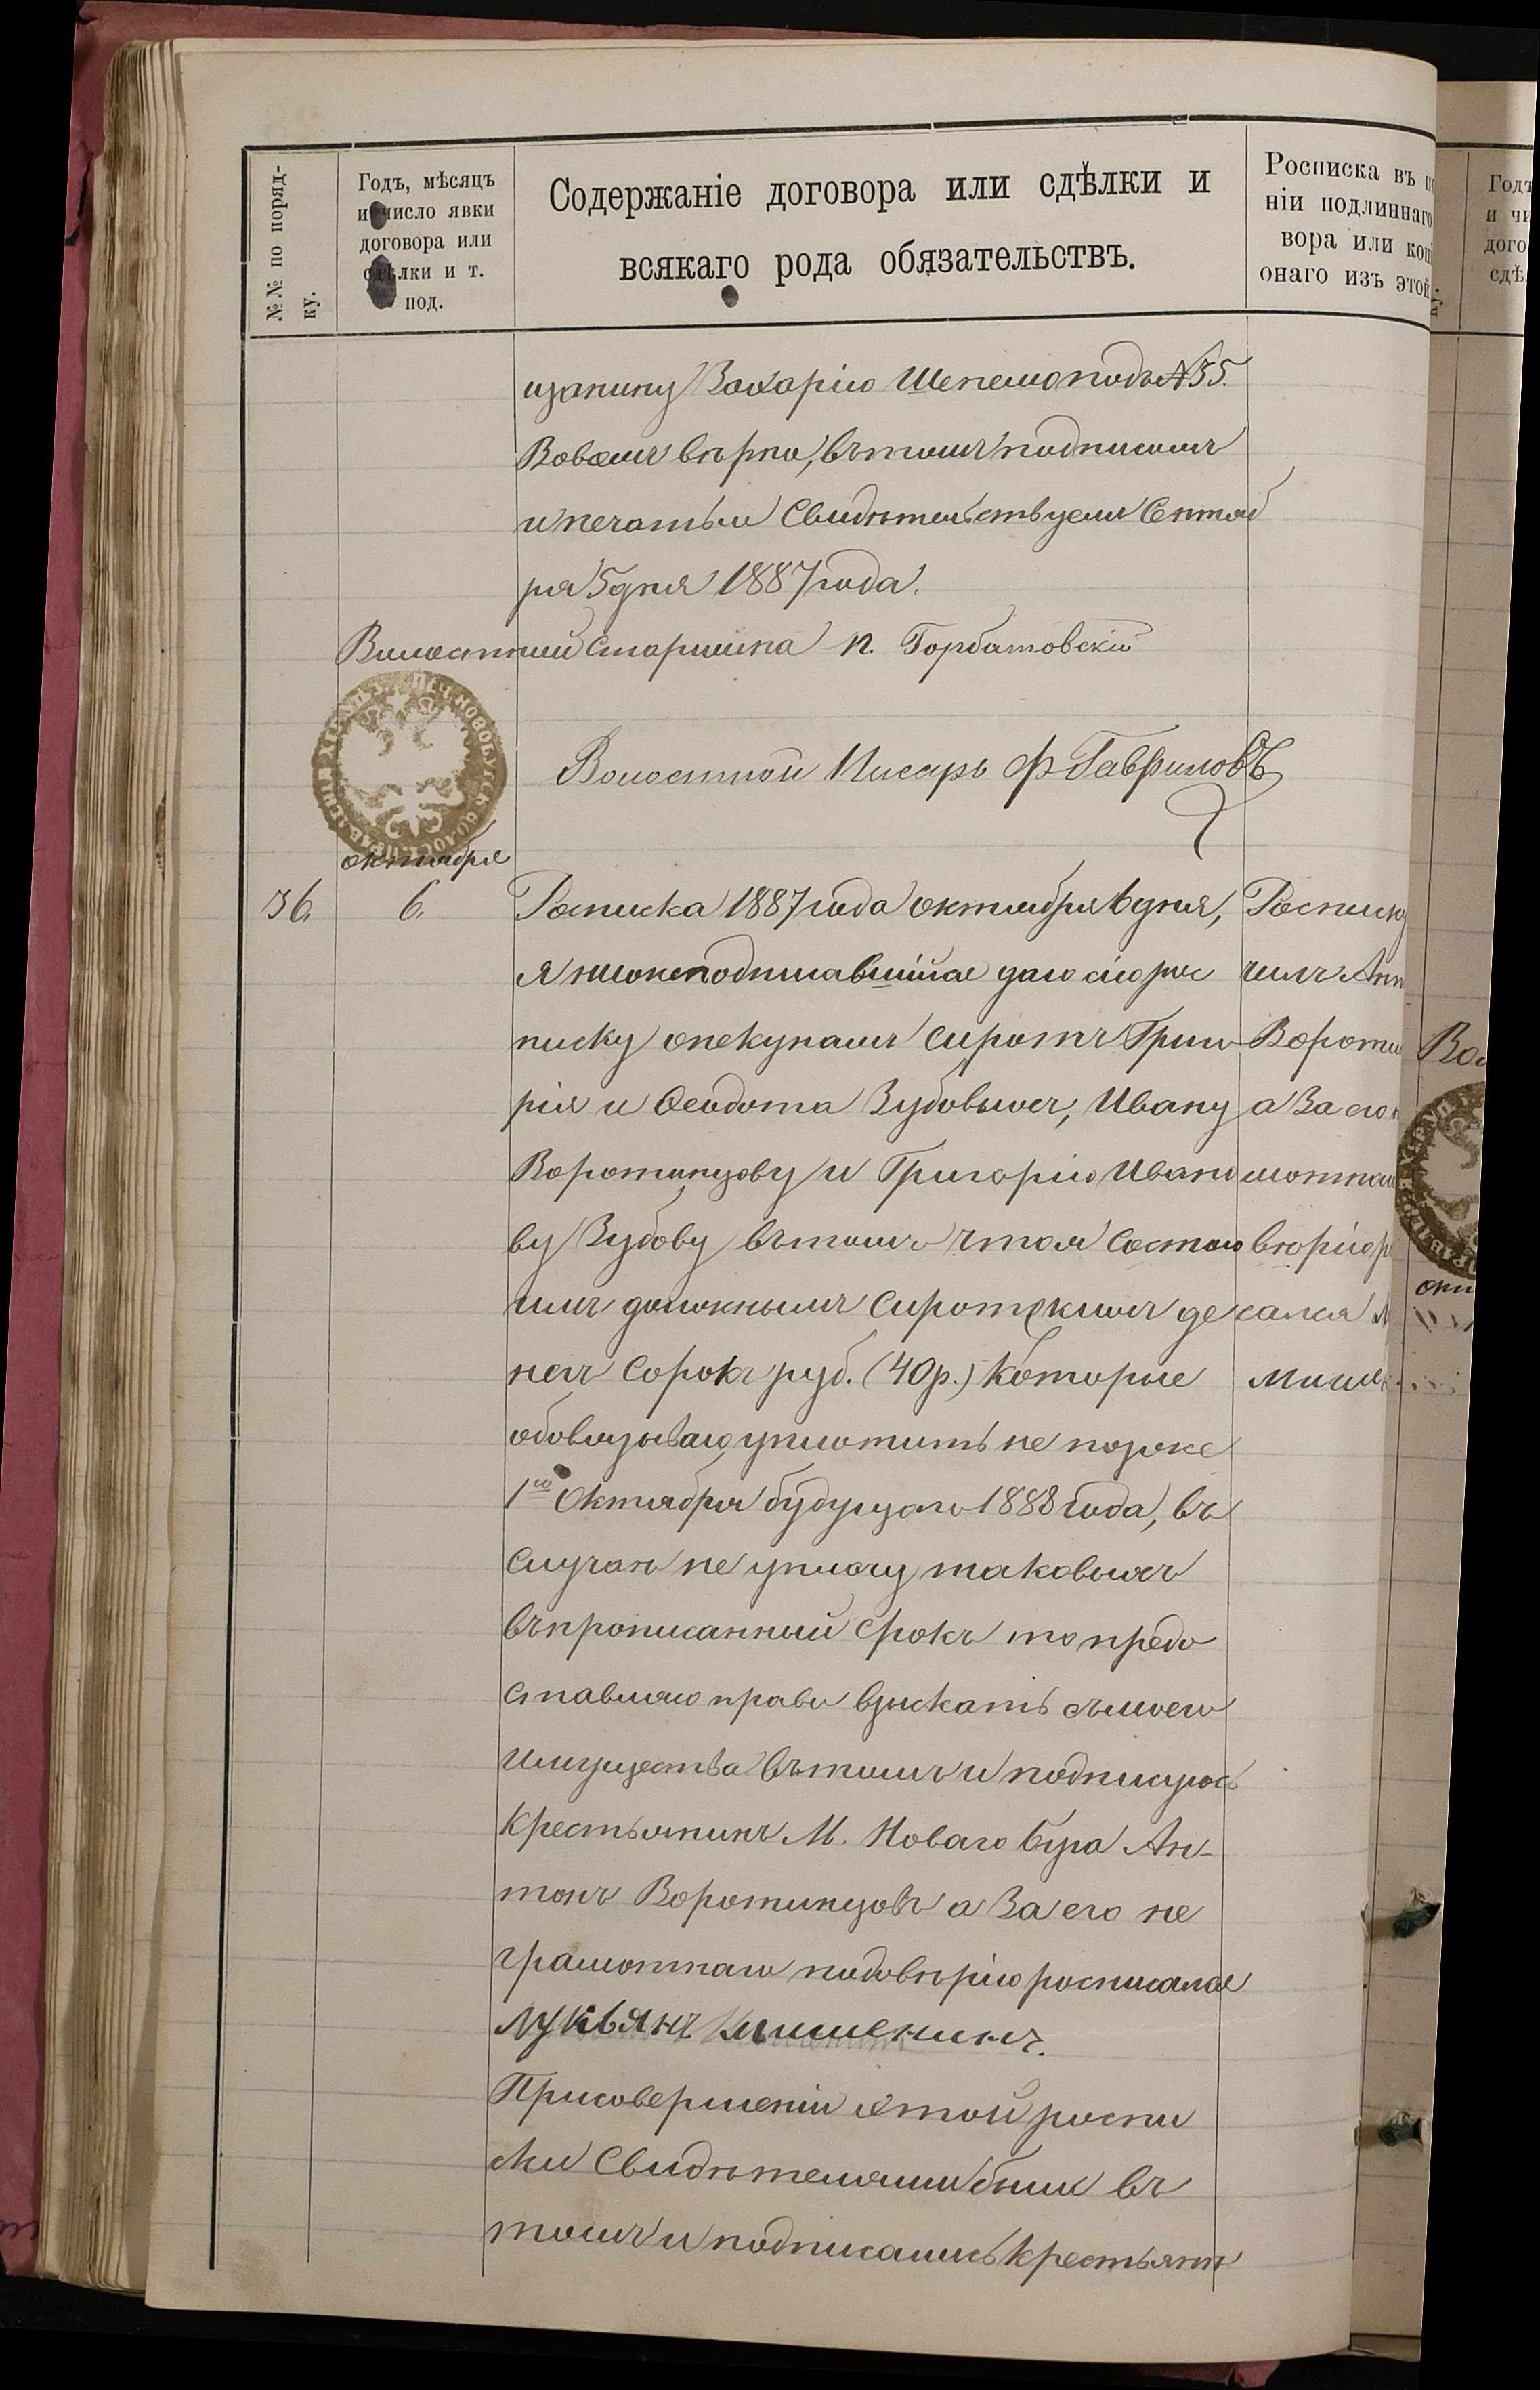 №№ по поряд-
ку.
Годъ, мѣсяцъ
и число явки
договора или
сдѣлки и т.
под.
Содержаніе договора или сдѣлки и
всякаго рода обязательствъ.
Росписка въ
ніи подлиннаго
вора или коп
онаго изъ этой
Годъ
и чи
дого
сдѣ
щанину Захарію Шепелю подъ №35.
вѣрно, въ томъ подписомъ
и печатью Свидѣтельствуемъ Сентяб
ря 5 дня 1887 года.
Волостной Старшина п. Горбатовскій
Волостной Писарь Ф Гавриловъ
октября
36. 6.
Росписка 1887 года октября 6 дня,
я нижеподписавшійся даю сію рос
писку опекунамъ сиротъ Григо
рія и Феодота Зубовыхъ, Ивану
Воротынцову и Григорію Ивано
ву Зубову въ томъ что я состою
имъ должнымъ Сиротскихъ де
негъ Сорокъ руб. (40 р.) Которые
обовязываю уплотить не позже
1го Октября будущаго 1888 года, въ
случаѣ не уплочу таковыхъ
въ прописанный срокъ то предо
ставляю право взыскать съ моего
имущества въ томъ и подписуюсь
Крестьянинъ М. Новаго Буга Ан-
тонъ Воротинцовъ а За его не
грамотнаго по довѣрію росписался
Лукьянъ Мишенинъ.
При совершеніи этой роспи
ски Свидѣтелями были въ
томъ и подписались Крестьяни
Росписку
чилъ Ант
Вороти
а За его н
мотнаго
вѣрію р
сался
Мишен
Вол
окт